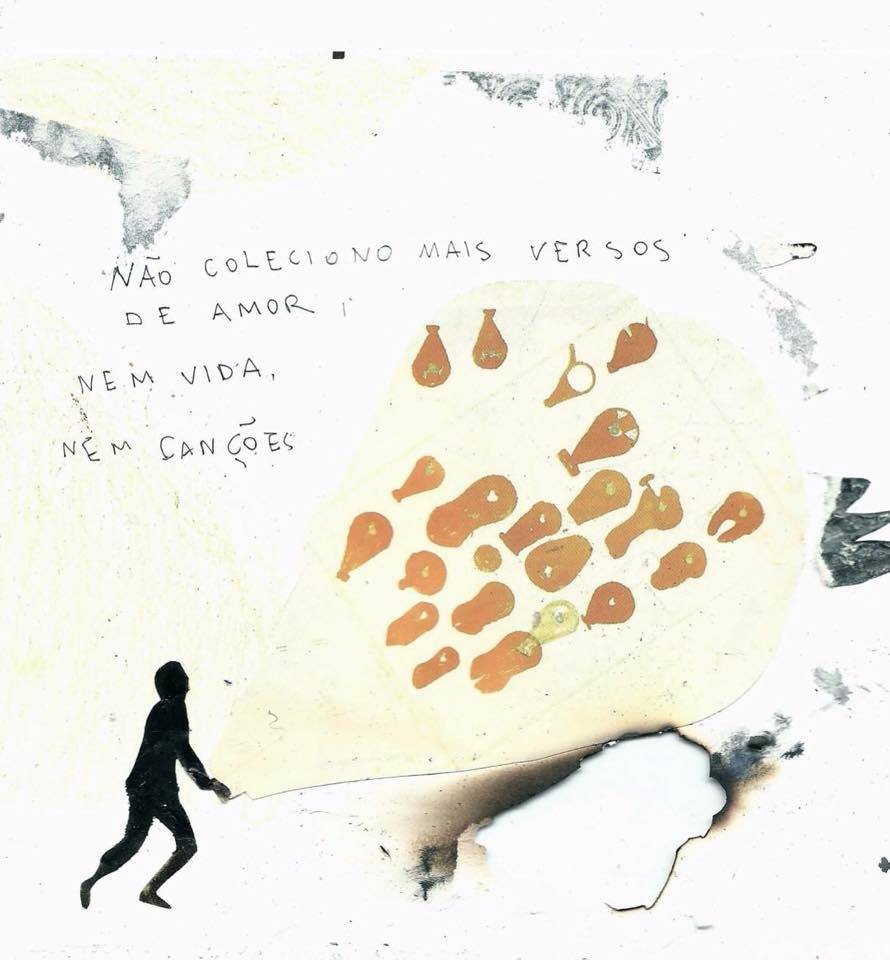 NÃO COLECIONO MAIS VERSOS
DE AMOR
NEM VIDA,
NEM CANÇÕES